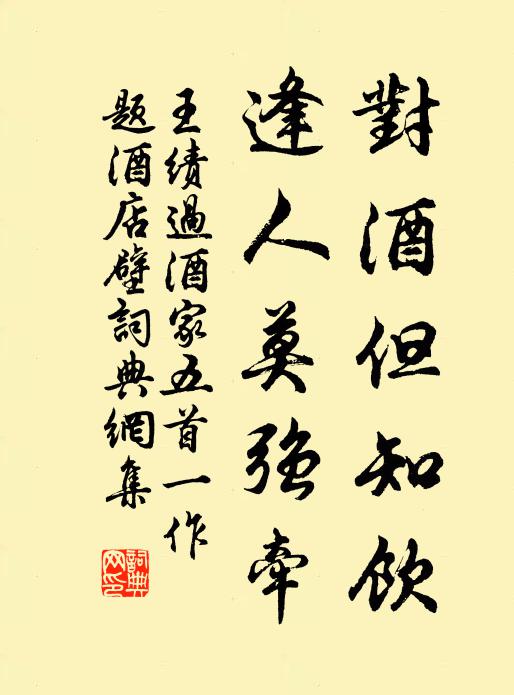 對酒但知飲
逢人莫強牽
王績過酒家五首一作
題酒店壁詞典網集
詞典
网印